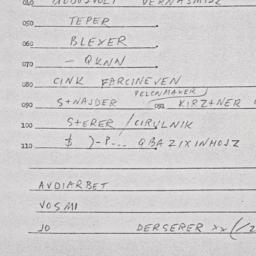 050 TEPER
060 BLEYER
070 - QKNN
080 CINK FARCINEVEN
PELENMAKER
090 S+NAJDER 091 KIRZ+NER
100 S+ERER / CIRULNIK
110 $ )-P... QBAZIXINHOJZ
AVDIARBET
VOSMI
JO DERSERER xx (/2